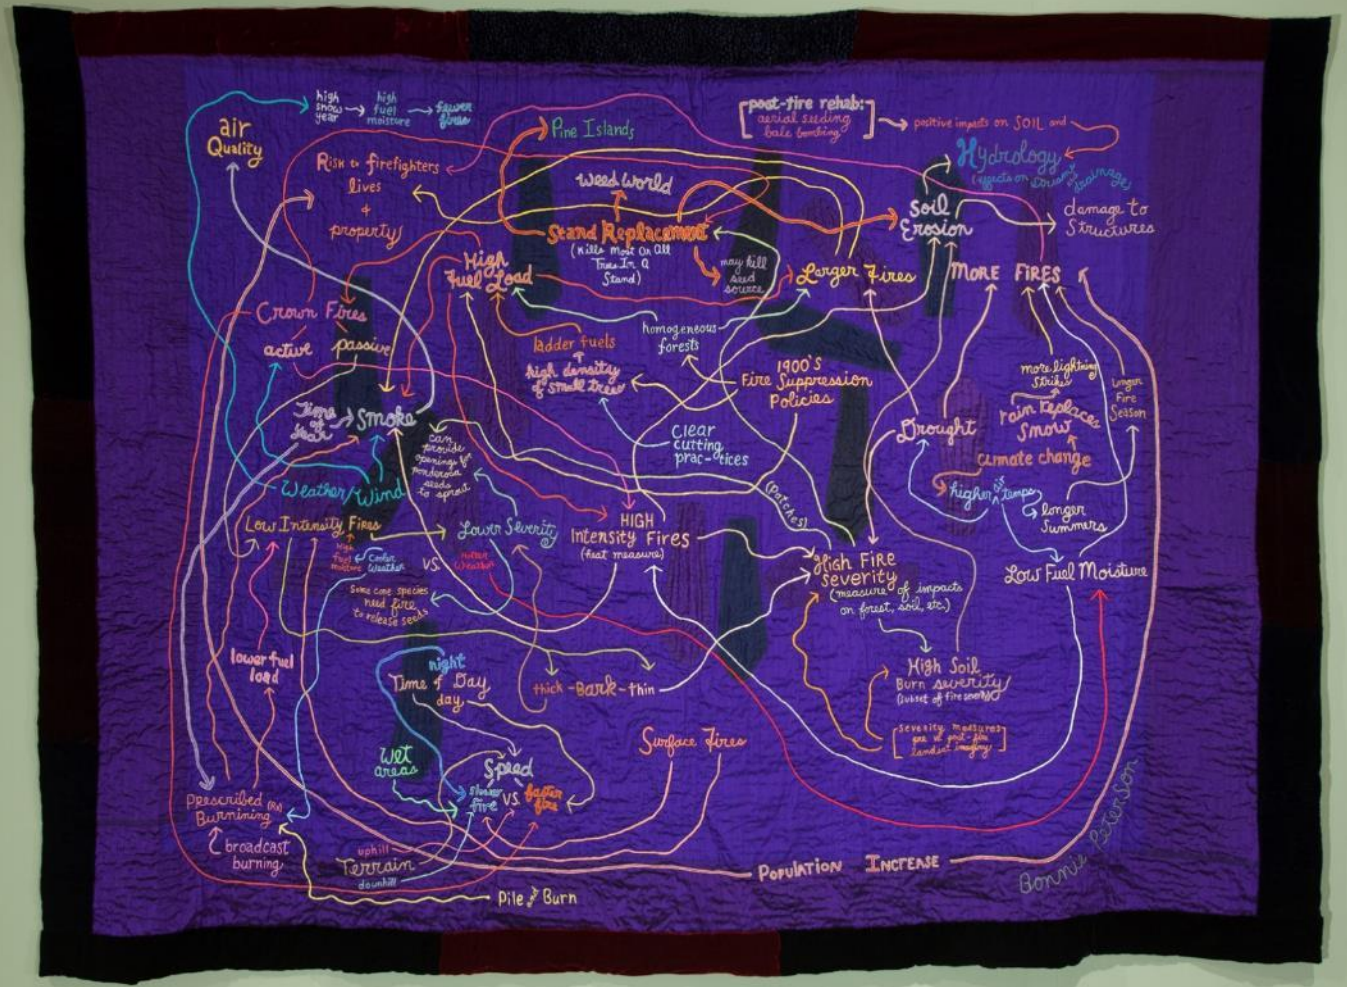 high
snow
year
high
fuel
moisture
fewer
fires
air
Quality
Pine Islands
[post-fire rehab:
aerial seeding
bale bombing]
positive impacts on SOIL and
Hydrology
(effects on streams
drainage)
Risk to firefighters
lives
&
property
Weed World
Stand Replacement
(Kills Most Or All
Trees In A
Stand)
may kill
seed
source
Soil
Erosion
damage to
Structures
High
Fuel Load
Larger Fires
MORE FIRES
Crown Fires
active
passive
homogeneous
forests
ladder fuels
high density
of small trees
1900's
Fire Suppression
Policies
more lightning
strikes
rain replaces
snow
climate change
longer
Fire
Season
Time
of
Year
Smoke
can
provide
openings for
ponderosa
seeds
to sprout
Clear
cutting
prac-tices
Drought
higher
temps
longer
Summers
Weather/Wind
(patches)
Low Intensity Fires
high
fuel
moisture
Cooler
Weather
Lower Severity
VS.
Hotter
Weather
HIGH
Intensity Fires
(heat measure)
High FIRE
Severity
(measure of impacts
on forest, soil, etc.)
Low Fuel Moisture
Some cone species
need fire
to release seeds
lower fuel
load
night
Time of Day
day
thick-Bark-thin
High Soil
Burn severity
(subset of fire severity)
[Severity measures:
pre & post-fire
landsat imagery]
Surface Fires
Wet
areas
Speed
slower
fire
VS.
faster
fire
prescribed (Rx)
Burnining
broadcast
burning
uphill
Terrain
downhill
Pile and Burn
POPULATION INCREASE
Bonnie Peterson